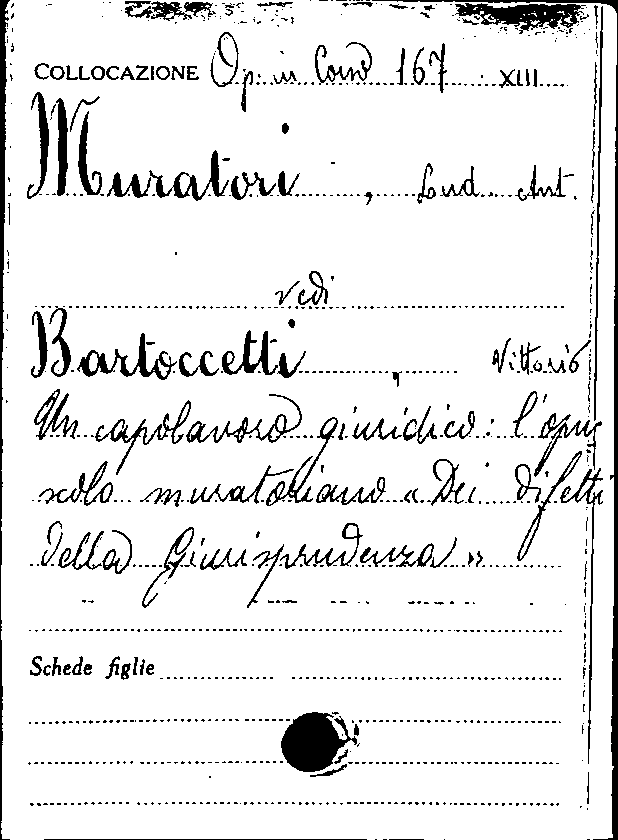 COLLOCAZIONE Op. in Cons 167 XIII
Muratori, Lud. Ant.
vedi
Bartoccetti, Vittorio
Un capolavoro giuridico: l'opu
scolo muratoriano « Dei difetti
della Giurisprudenza »
Schede figlie